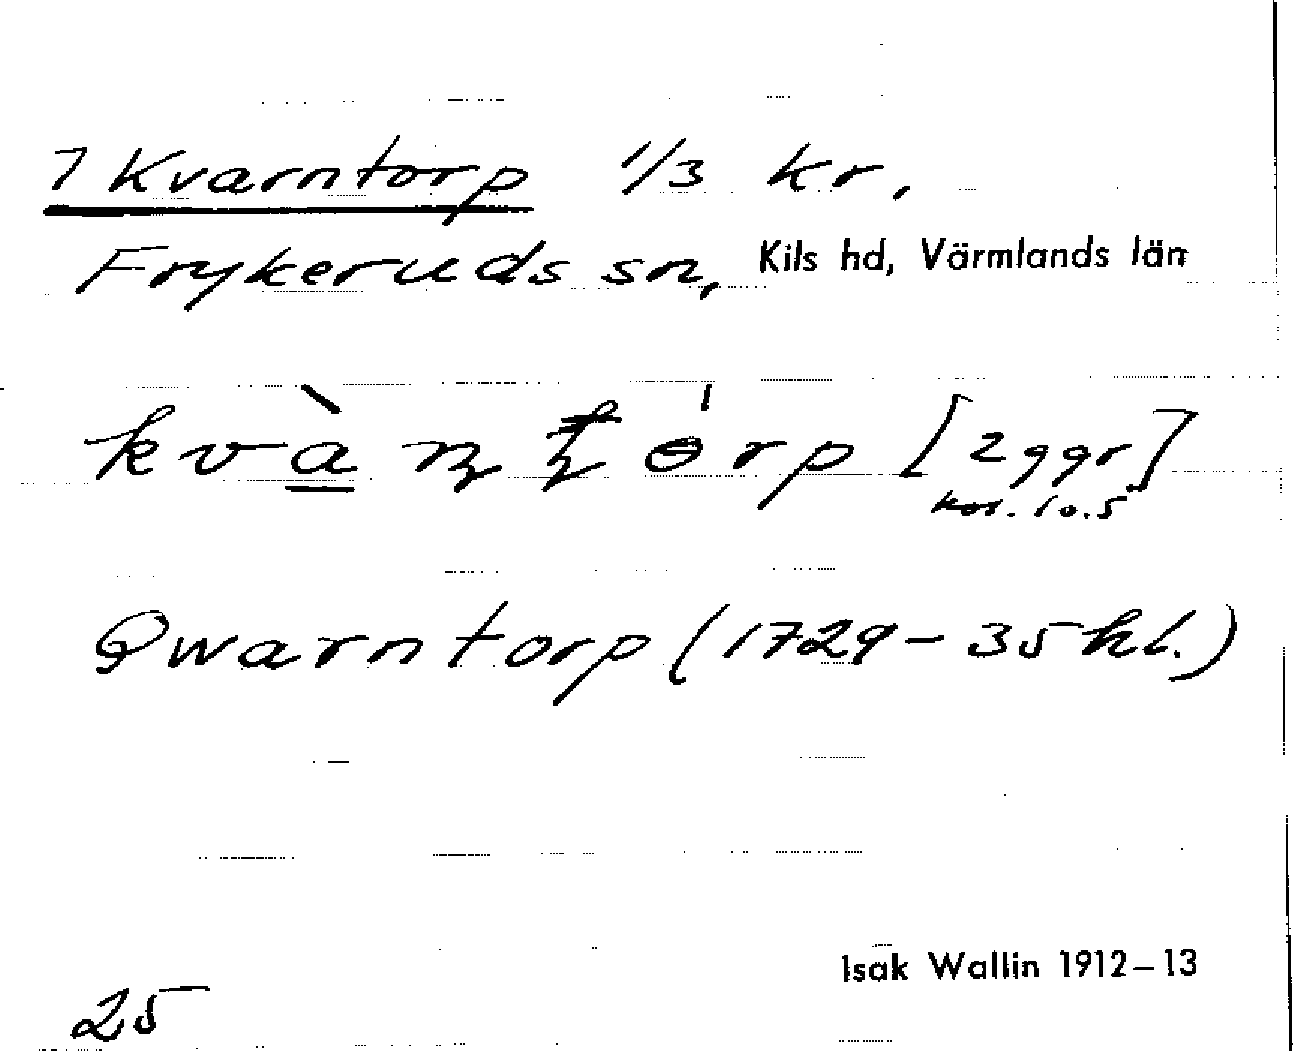 7 Kvarntorp 1/3 kr,
Frykeruds sn, Kils hd, Värmlands län
kvà̱ɳʈɵ́rp [2 ggr]
kor. 10.5
Qwarntorp (1729-35 hl.)
Isak Wallin 1912-13
25